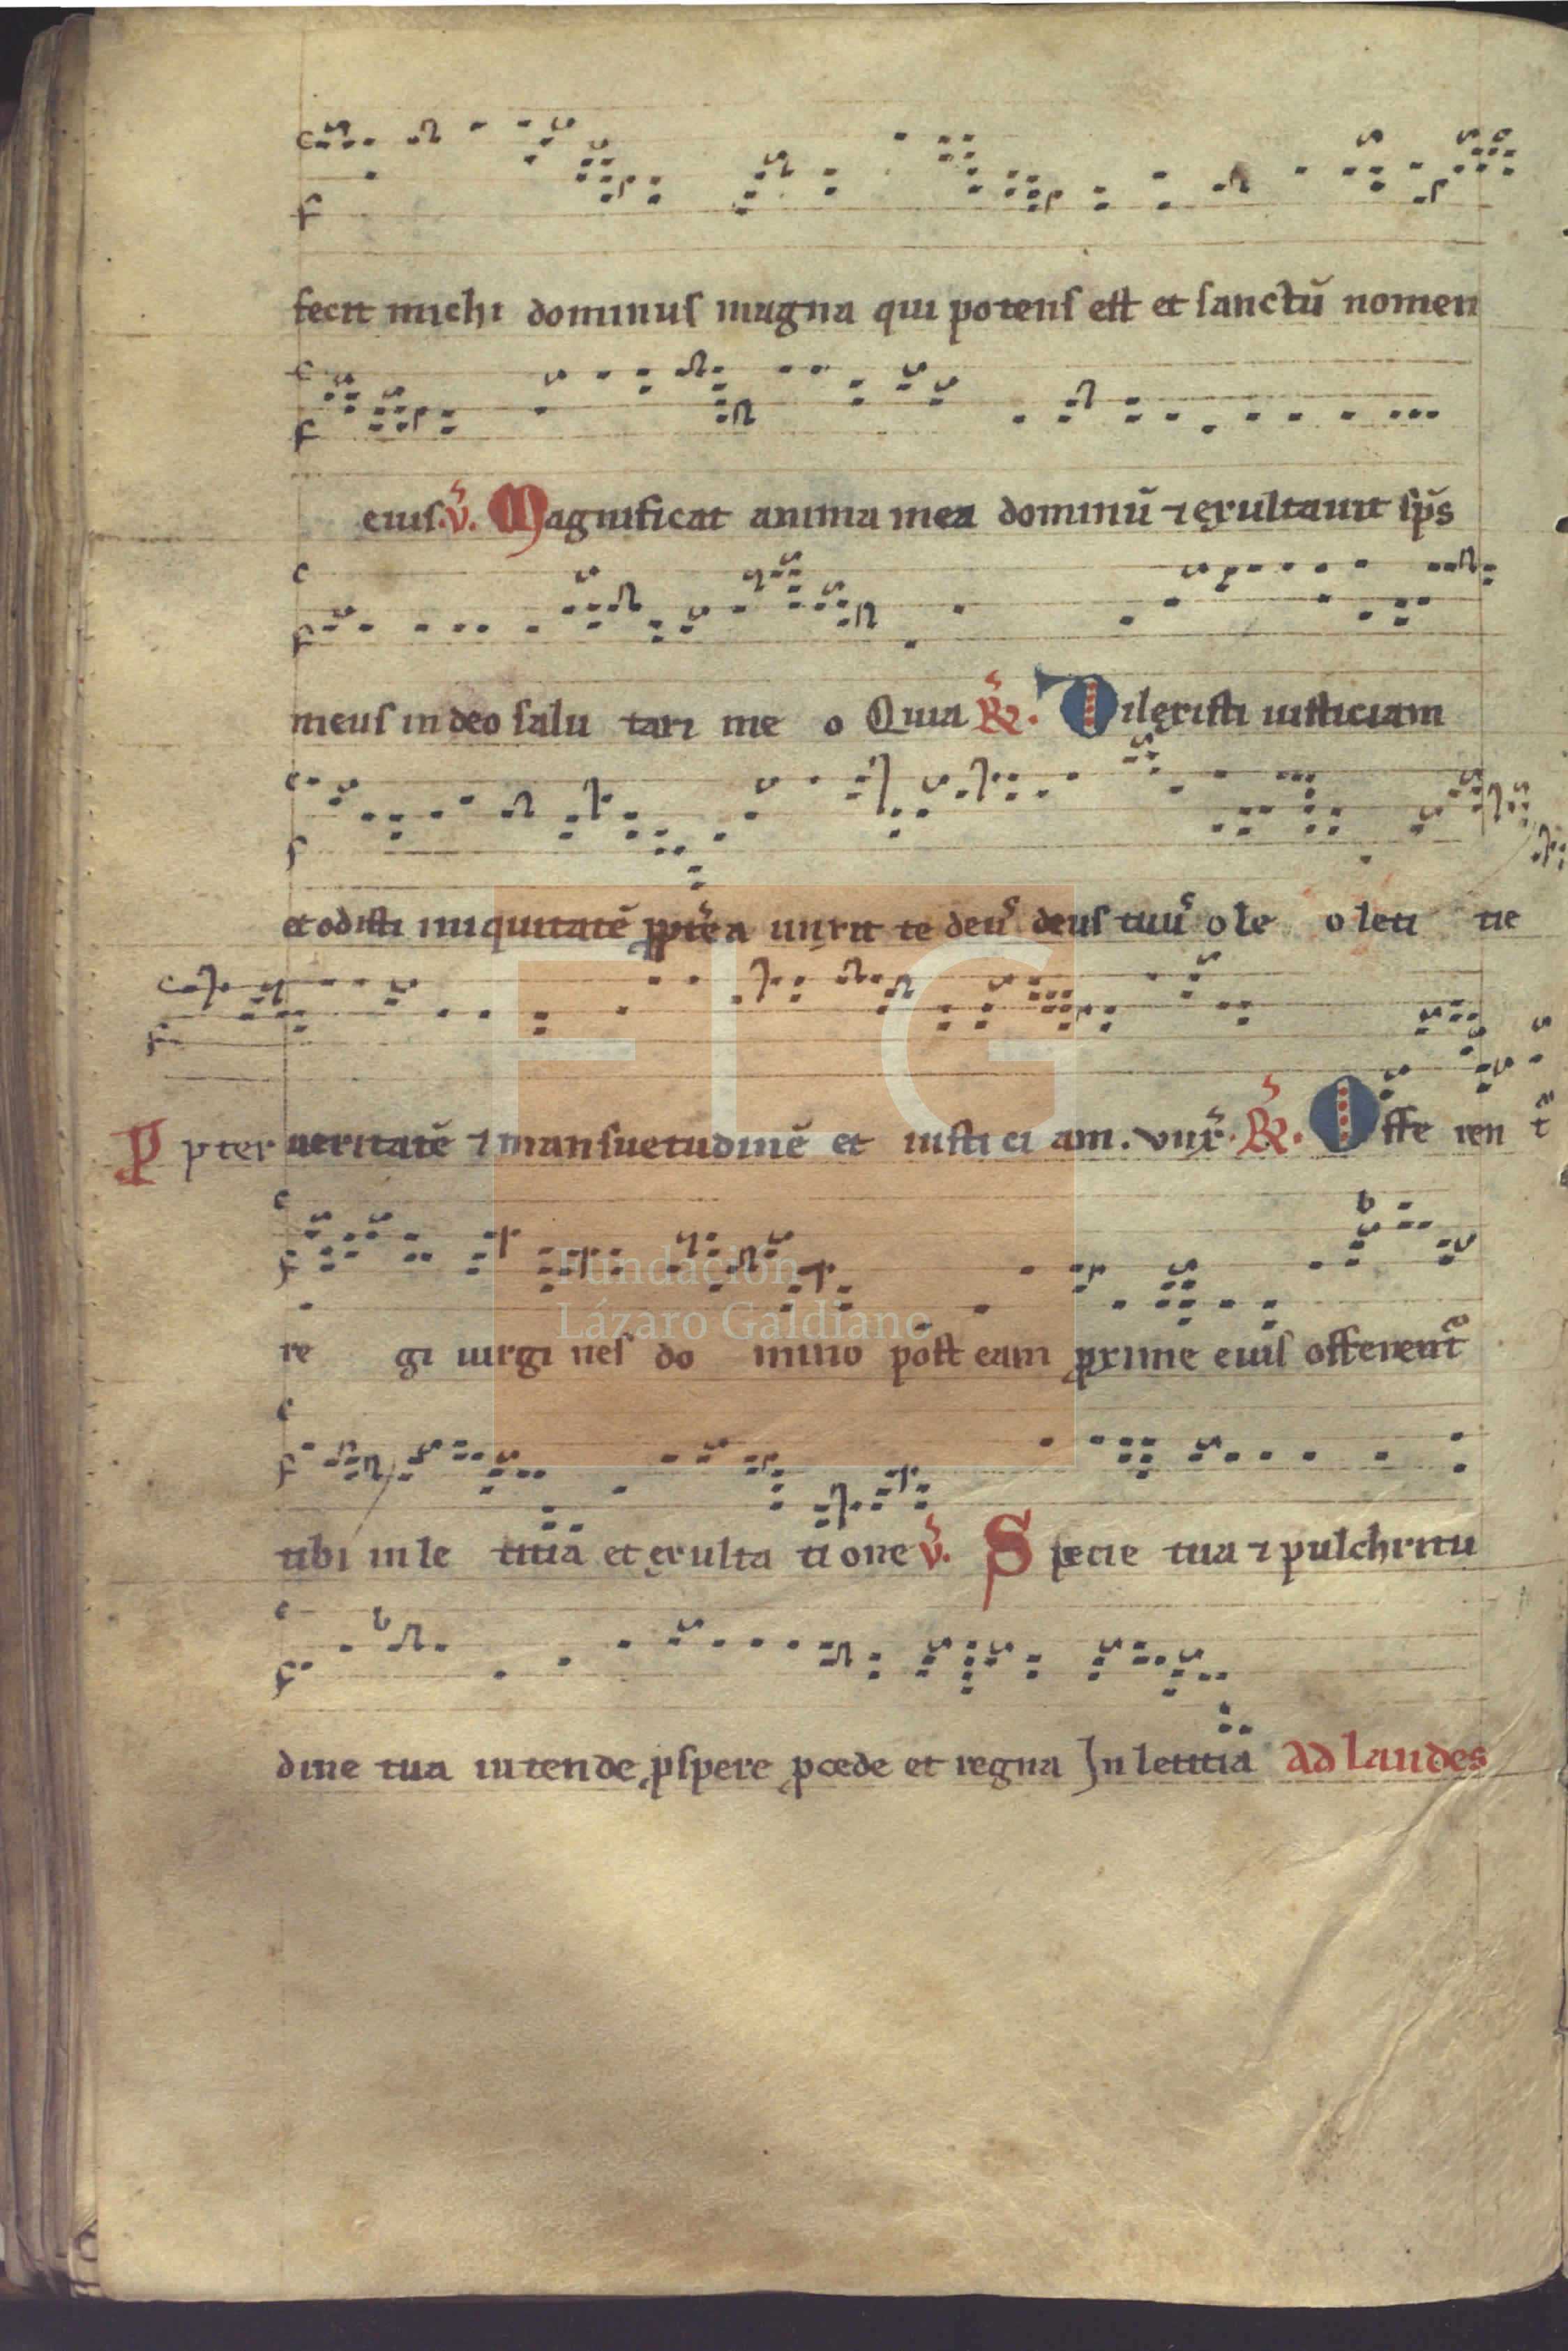 fecit michi dominus magna qui potens est et sanctū nomen
eius. v̄. Magnificat anima mea dominū ⁊ exultauit sp̄s
meus in deo salu tari me o Quia R̄. Dilexisti iusticiam
et odisti iniquitatē ꝓpterea unxit te deus deus tuus ole o leti tie
P pter ueritatē ⁊ mansuetudinē et iusti ci am. vnx̄. R̄. Offe ren t̄
re gi uirgi nes do mino post eam ꝓxime eius offerent̄
tibi in le titia et exulta ti one v̄. Specie tua ⁊ pulchritu
dine tua intende ꝓspere ꝓcede et regna In letitia Ad laudes
FLG
Fundación
Lázaro Galdiano